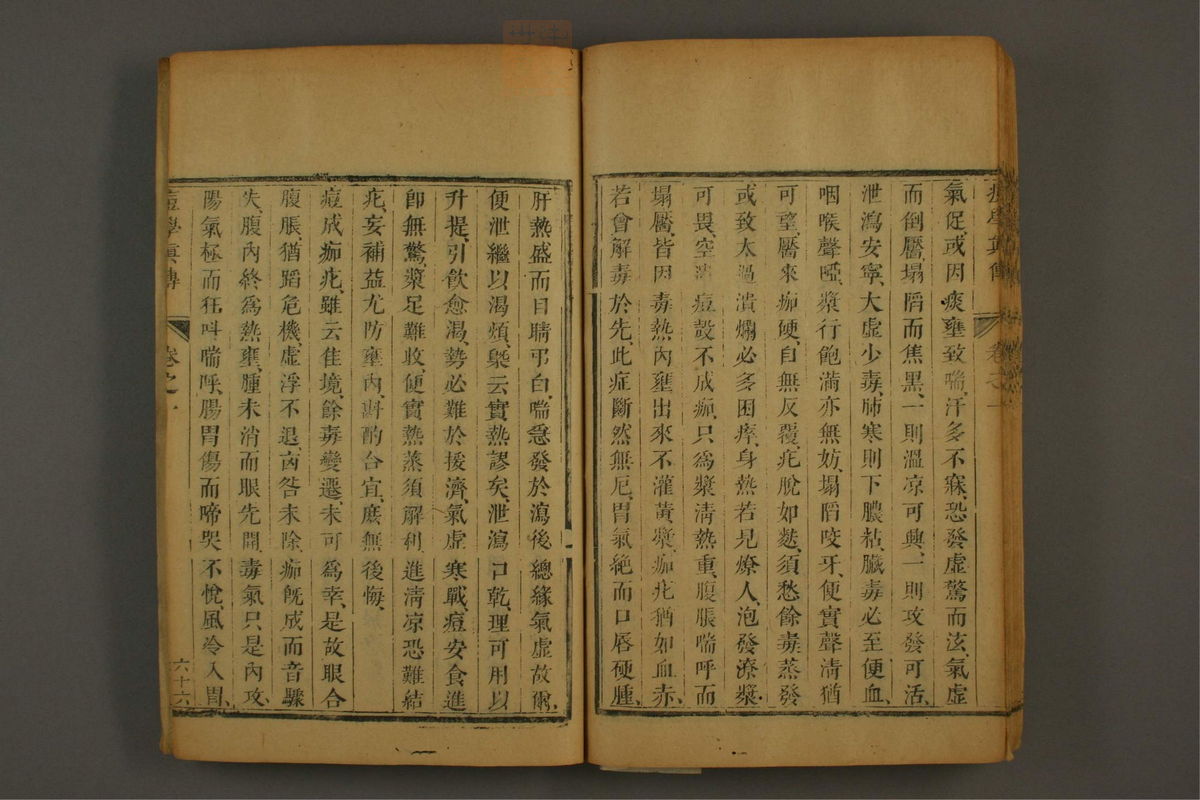 痘學真傳 卷之一
氣促、或因痰壅致喘、汗多不寐、恐發虛驚而泫、氣虛
而倒靨、塌陷而焦黑、一則溫凉可興、一則攻發可活、
泄瀉安寧、大虛少毒、肺寒則下膿粘、臟毒必至便血、
咽喉聲啞、漿行飽滿亦無妨、塌陷咬牙、便實聲清猶
可望、靨來痂硬、自無反覆、疕脫如麩、須愁餘毒蒸發
或致太過潰爛必多困瘁、身熱若見燎人、泡發療漿、
可畏、空 痘殼不成痂、只為漿清熱重、腹脹喘呼而
塌靨、皆因毒熱內壅出來不灌黃漿、痂疕猶如血赤、
若會解毒於先、此症斷然無厄、胃氣絕而口唇硬腫、
肝熱盛而目睛弔白、喘急發於瀉後、總緣氣虛故爾、
便泄繼以渴煩、槩云實熱謬矣、泄瀉口乾、理可用以
升提、引飲愈渴、勢必難於援濟、氣虛寒戰、痘安食進
即無驚、漿足難收、便實熱蒸須解利、進清凉恐難結
疕、妄補益尤防壅內、斟酌合宜、庶無後悔、
痘成痂疕、雖云佳境、餘毒變遷、未可為幸、是故眼合
腹脹、猶蹈危機、虛浮不退、凶咎未除、痂既成而音驟
失、腹內終為熱壅、腫未消而眼先開、毒氣只是內攻、
陽氣極而狂叫喘呼、腸胃傷而啼哭不悅、風冷入胃、
痘學真傳 卷之一 六十六